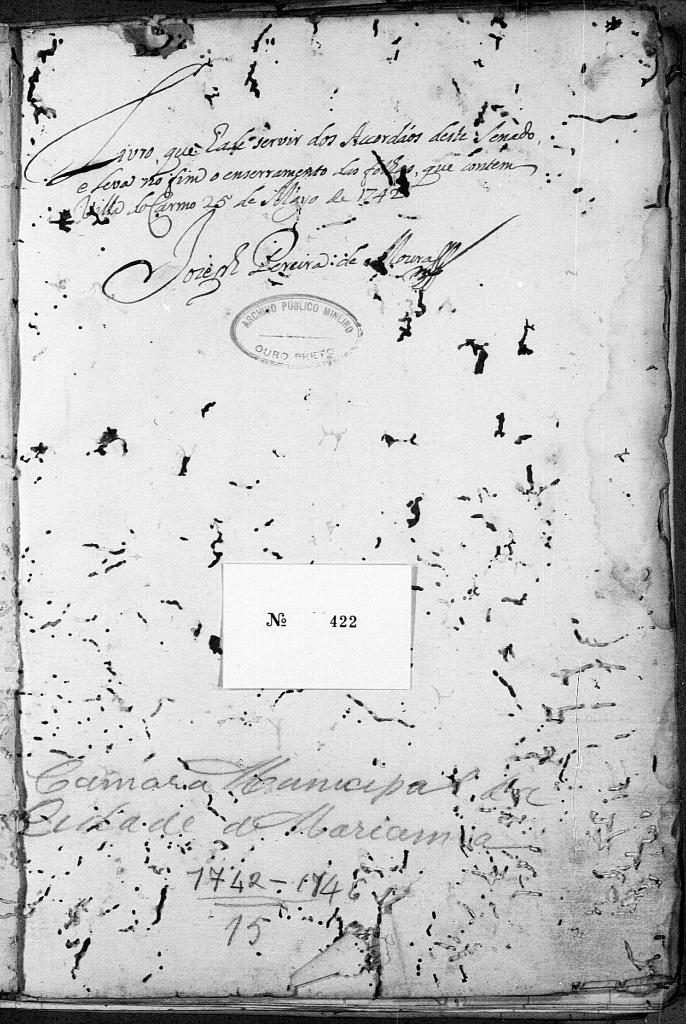 Livro, que hade servir dos Accordãos deste Senado,
e leva no fim o enserramento das folhas, que contem
Villa do Carmo 25 de Mayo de 1742
Joseph Pereira de Moura
ARCHIVO PUBLICO MINEIRO
OURO PRETO
Nº 422
Camara Municipal da
Cidade de Marianna
1742-1746
15